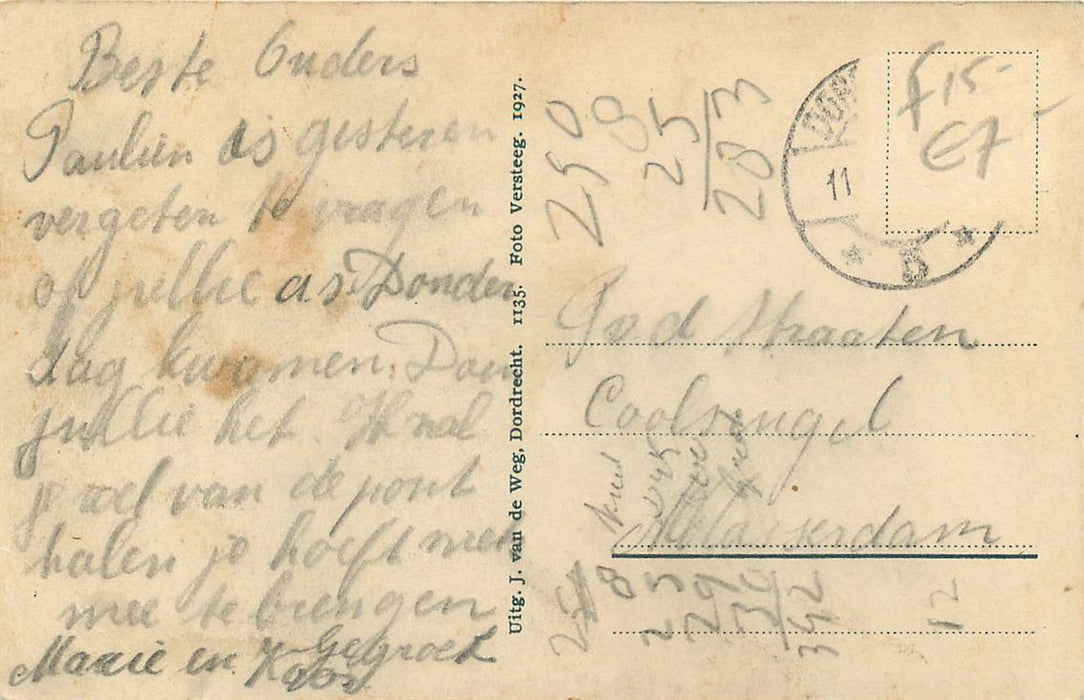 Beste Ouders
Paulien is gisteren
vergeten te vragen
of jullie as Donder
dag kwammen. Doen
jullie het. Ik zal
je wel van de pont
halen je hoeft niet
mee te brengen
Gegroet
Marie en Koos
Uitg. J. van de Weg, Dordrecht. 1135. Foto Versteeg. 1927.
290
8
25
283
DOR
11
6
f 15-
€7
G v d Straaten
Coolsingel
Alblasserdam
8
25
29
342
12